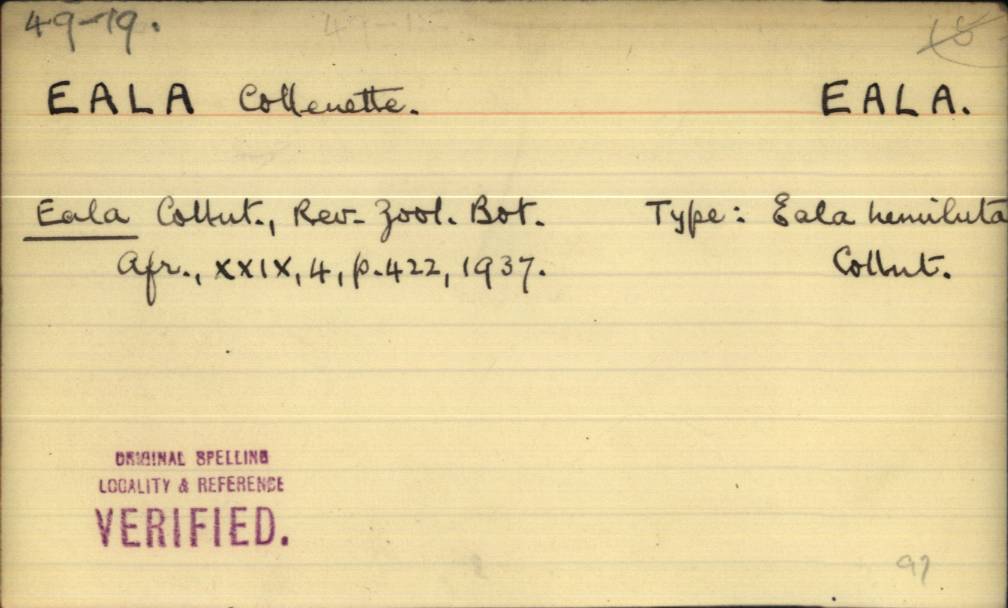 49-19.
18
EALA Collenette. EALA.
Eala Collnt., Rev. Zool. Bot. Type: Eala hemiluta
Afr., XXIX, 4, p. 422, 1937. Collnt.
ORIGINAL SPELLING
LOCALITY & REFERENCE
VERIFIED.